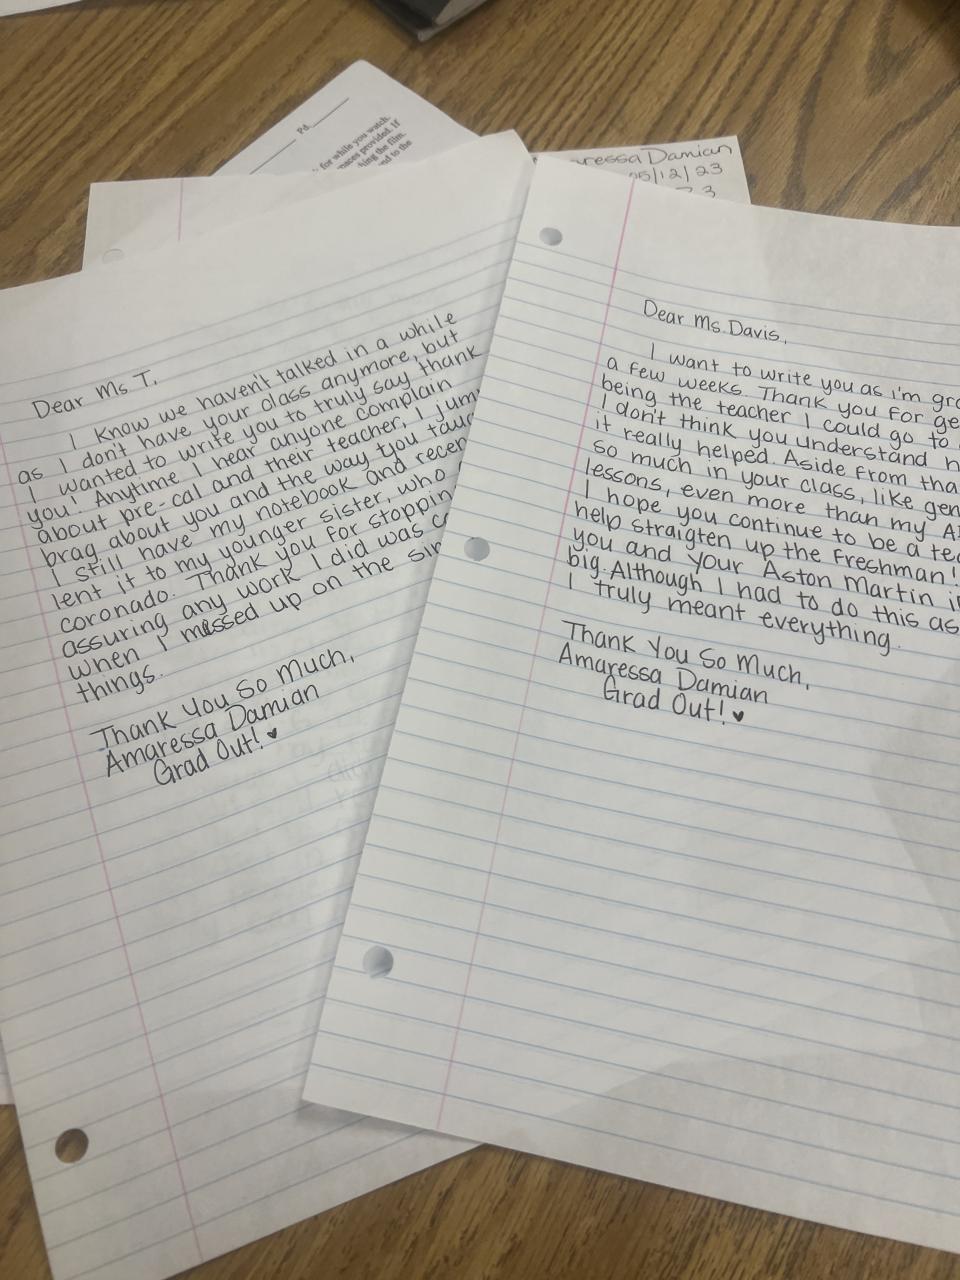 Pd.
for while you watch.
spaces provided. If
the film.
to the
Damian
05/12/23
Dear Ms T.
I know we haven't talked in a while
as I don't have your class anymore, but
I wanted to write you to truly say thank
you! Anytime I hear anyone complain
about pre-cal and their teacher, I
brag about you and the way you
I still have my notebook and
lent it to my younger sister, who
coronado. Thank you for
assuring any work I did was
when I messed up on the
things.
Thank You So Much,
Amaressa Damian
Grad Out! ♥
Dear Ms. Davis,
I want to write you as i'm
a few weeks. Thank you for
being the teacher I could go to
I don't think you understand
it really helped. Aside from
so much in your class, like
lessons, even more than my
I hope you continue to be a
help straigten up the Freshman!
you and your Aston Martin
big. Although I had to do this
I truly meant everything.
Thank You So Much,
Amaressa Damian
Grad Out! ♥